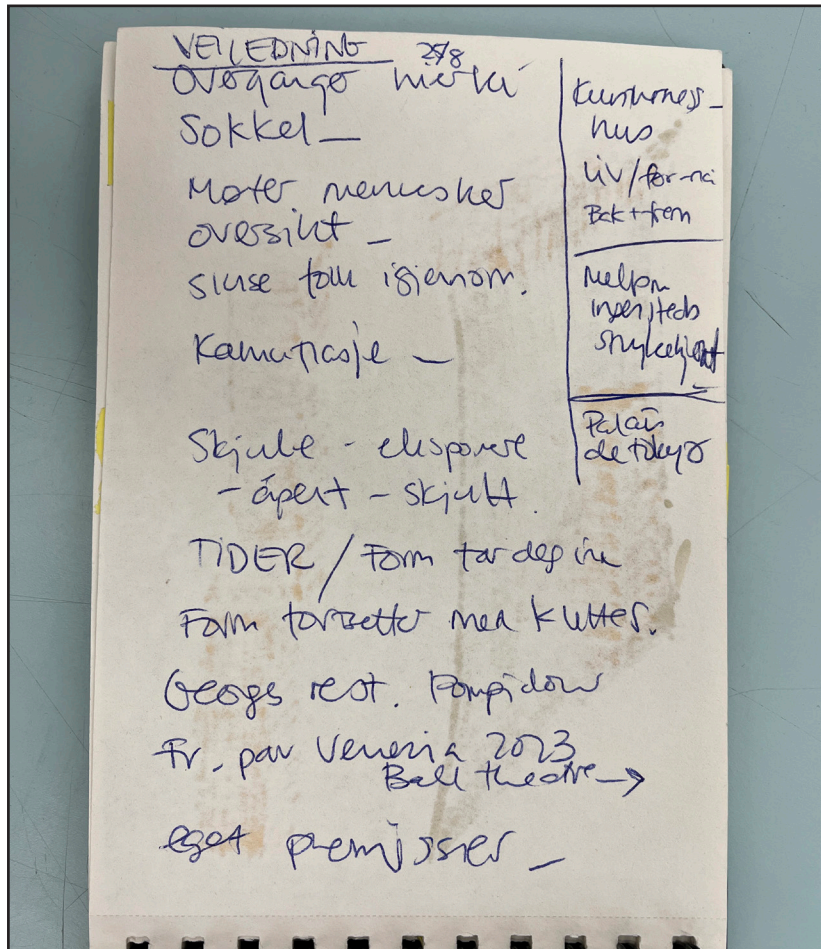 VEILEDNING 28/8
Overgange
Sokkel _
Møter mennesker
oversikt _
sluse folk igjenom.
Kamuflasje _
Skjule - eksponere
- åpent - skjult
TIDER / Form tar deg inn
Form fortsetter men kuttes.
Geogs rest. Pompidou
Fr. pav Venezia 2023
Ball theatre →
eget premisser _
hus
Liv / før-nå
Bak + frem
Palais
de tokyo